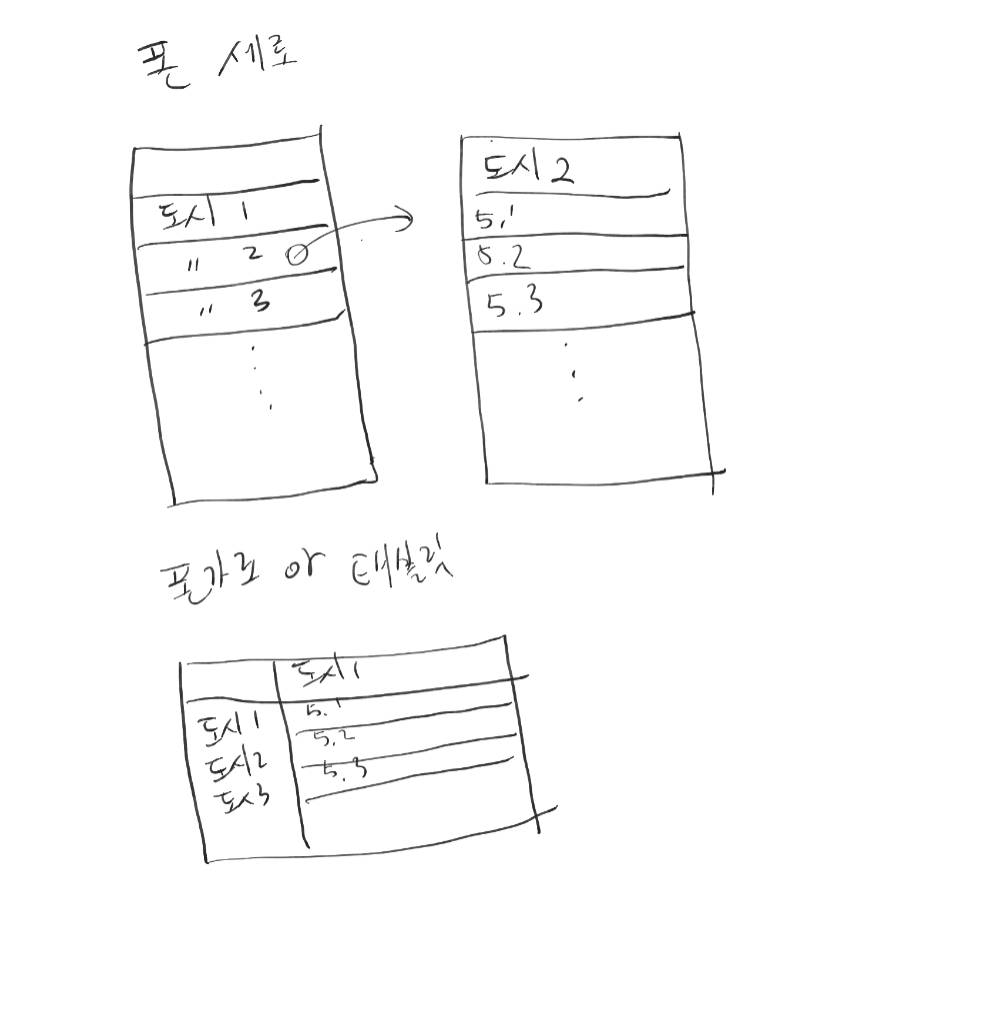 폰 세로
도시 1
" 2
" 3
도시 2
5.1
5.2
5.3
폰가로 or 태블릿
도시1
도시1
도시2
도시3
5.1
5.2
5.3